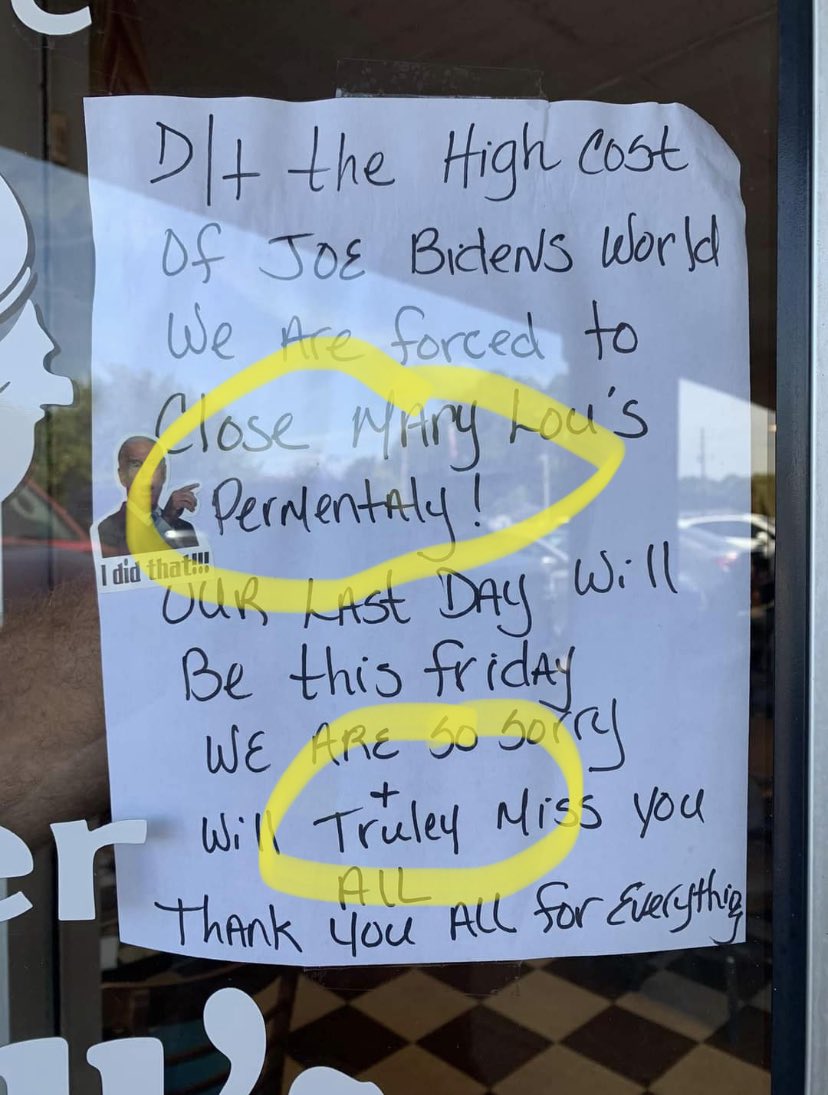 e
D/t the High Cost
Of JOE Bidens World
We Are forced to
Close MAry Lou's
PerMentAly!
I did that!!!
OUR LAst DAy Will
Be this friDAy
WE ARE SO SOrry
+
Will Truley Miss you
ALL
THANK you ALL for Everything
er
u's